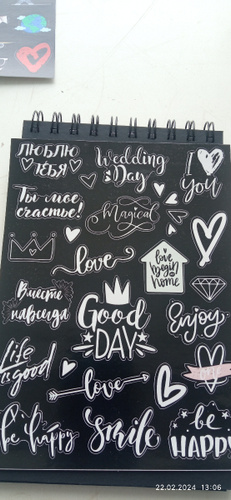 ЛЮБЛЮ
ТЕБЯ
Wedding
Day
I
You
Ты мое
счастье!
Magical
love
love
begin
in
home
Вместе
навсегда
Good
DAY
Enjoy
Life
is good
love
be happy
Smile
be
HAPPY
22.02.2024 13:06